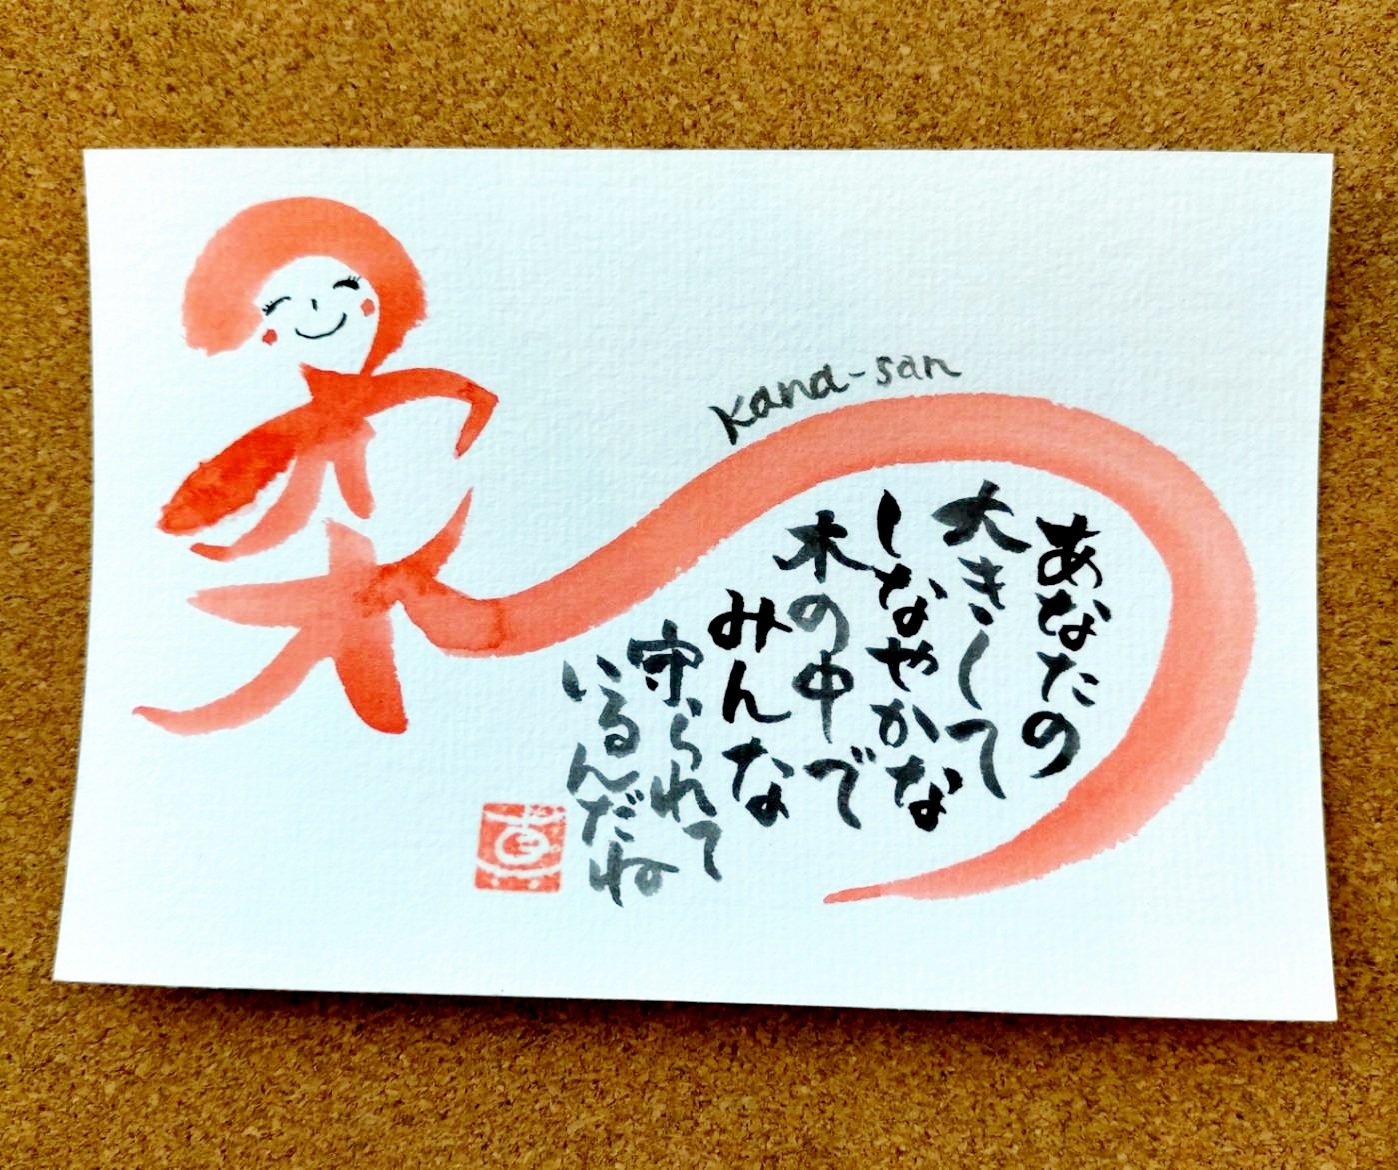 柔
Kana-san
あなたの
大きくて
しなやかな
木の中で
みんな
守られて
いるんだね